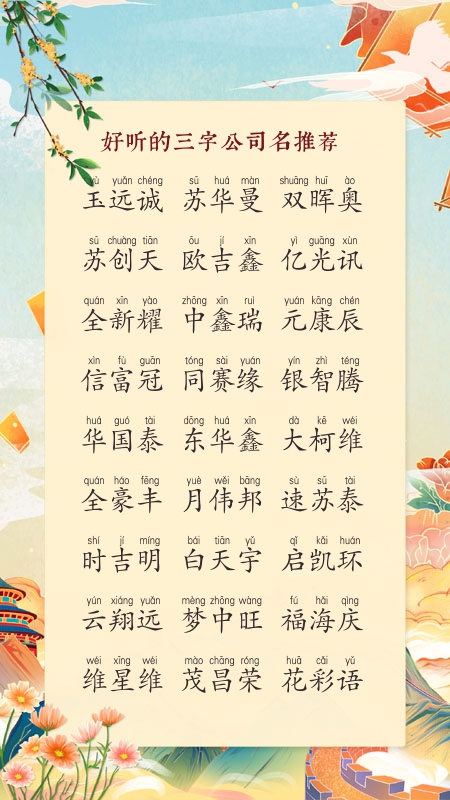 好听的三字公司名推荐
yù yuǎn chéng sū huá màn shuāng huī ào
玉远诚 苏华曼 双晖奥
sū chuàng tiān ōu jí xīn yì guāng xùn
苏创天 欧吉鑫 亿光讯
quán xīn yào zhōng xīn ruì yuán kāng chén
全新耀 中鑫瑞 元康辰
xìn fù guān tóng sài yuán yín zhì téng
信富冠 同赛缘 银智腾
huá guó tài dōng huá xīn dà kē wéi
华国泰 东华鑫 大柯维
quán háo fēng yuè wěi bāng sù sū tài
全豪丰 月伟邦 速苏泰
shí jí míng bái tiān yǔ qǐ kǎi huán
时吉明 白天宇 启凯环
yún xiáng yuǎn mèng zhōng wàng fú hǎi qìng
云翔远 梦中旺 福海庆
wéi xīng wéi mào chāng róng huā cǎi yǔ
维星维 茂昌荣 花彩语